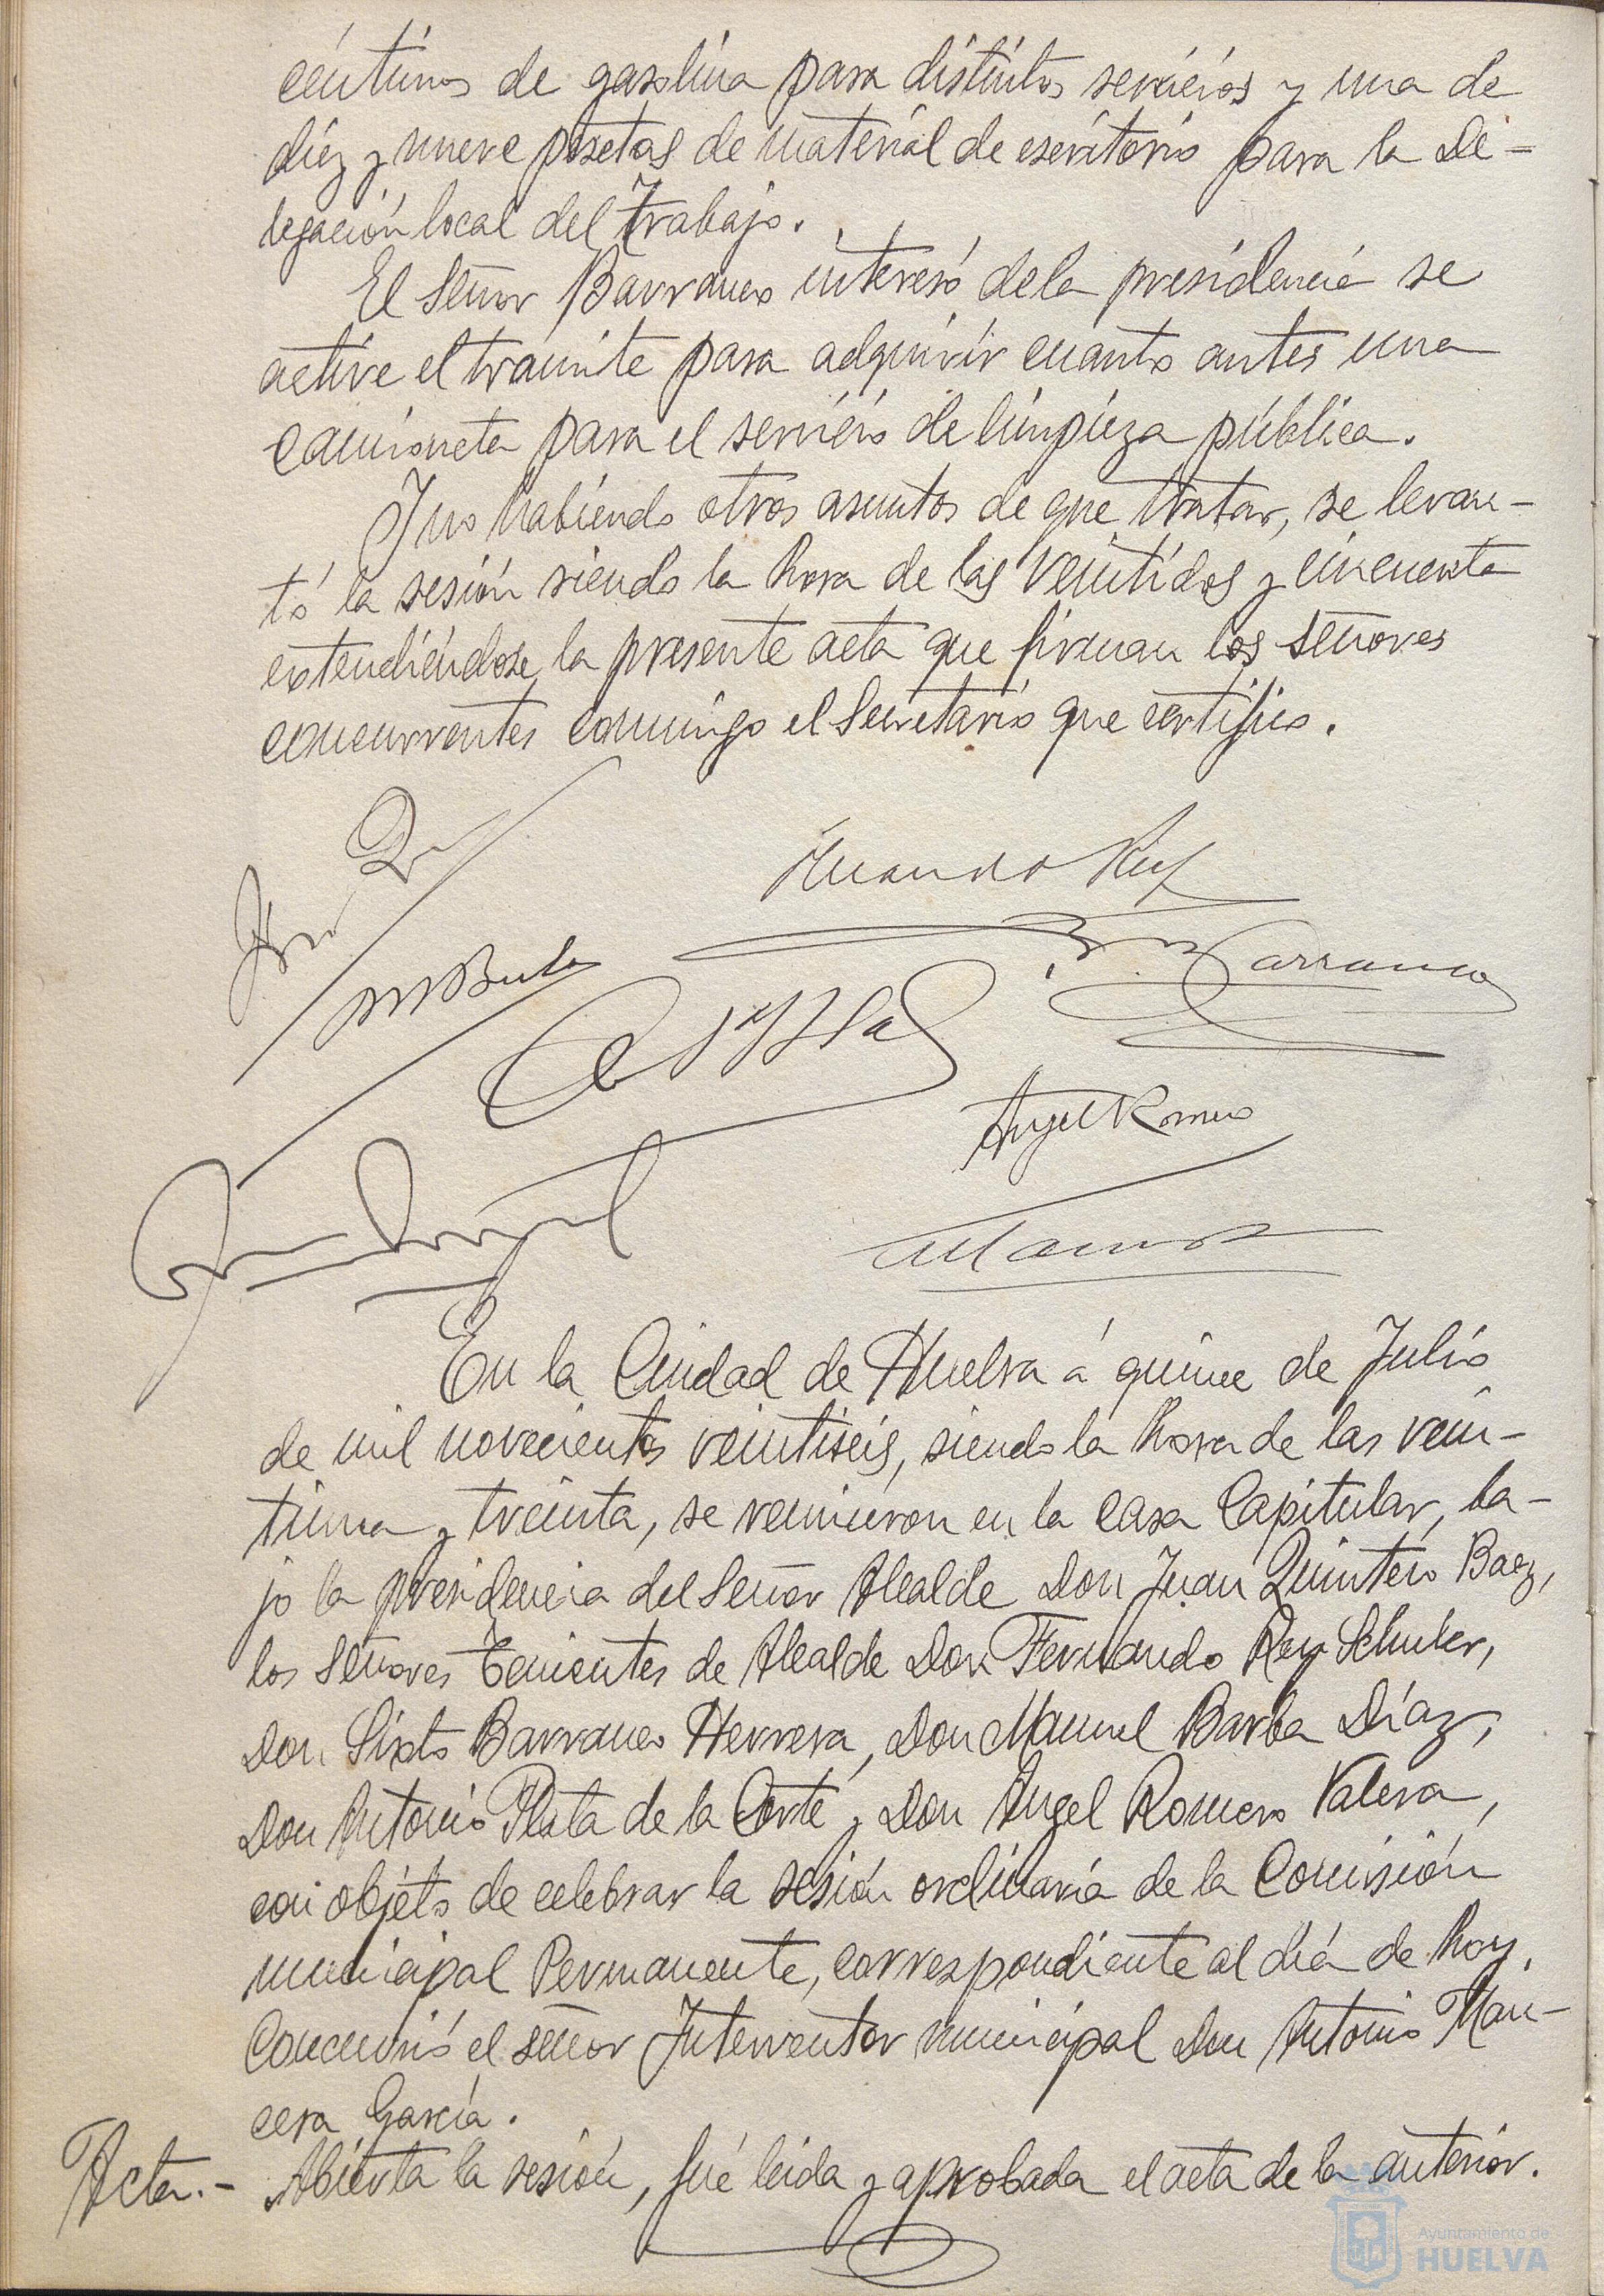 céntimos de gasolina para distintos servicios y una de
diez y nueve pesetas de material de escritorio para la De-
legación local del Trabajo.
El Señor Barranco interesó de la presidencia se
active el tramite para adquirir cuanto antes una
camioneta para el servicio de limpieza pública.
Y no habiendo otros asuntos de que tratar, se levan-
tó la sesión siendo la hora de las veintidos y cincuenta
extendiéndose la presente acta que firman los señores
concurrentes conmigo el Secretario que certifico.
Fernando Rey
Barranco
M Barba
A. Plata
Angel Romero
En la Ciudad de Huelva á quince de Julio
de mil novecientos veintiseis, siendo la hora de las vein-
tiuna y treinta, se reunieron en la Casa Capitular, ba-
jo la presidencia del Señor Alcalde Don Juan Quintero Baez,
los Señores Tenientes de Alcalde Don Fernando Rey Schuler,
Don Sixto Barranco Herrera, Don Manuel Barba Díaz,
Don Antonio Plata de la Corte y Don Angel Romero Valera,
con objeto de celebrar la sesión ordinaria de la Comisión
municipal Permanente, correspondiente al día de hoy.
Concurrió el señor Interventor municipal Don Antonio Man-
cera García.
Acta.- Abierta la sesión, fué leida y aprobada el acta de la anterior.
Ayuntamiento de
HUELVA